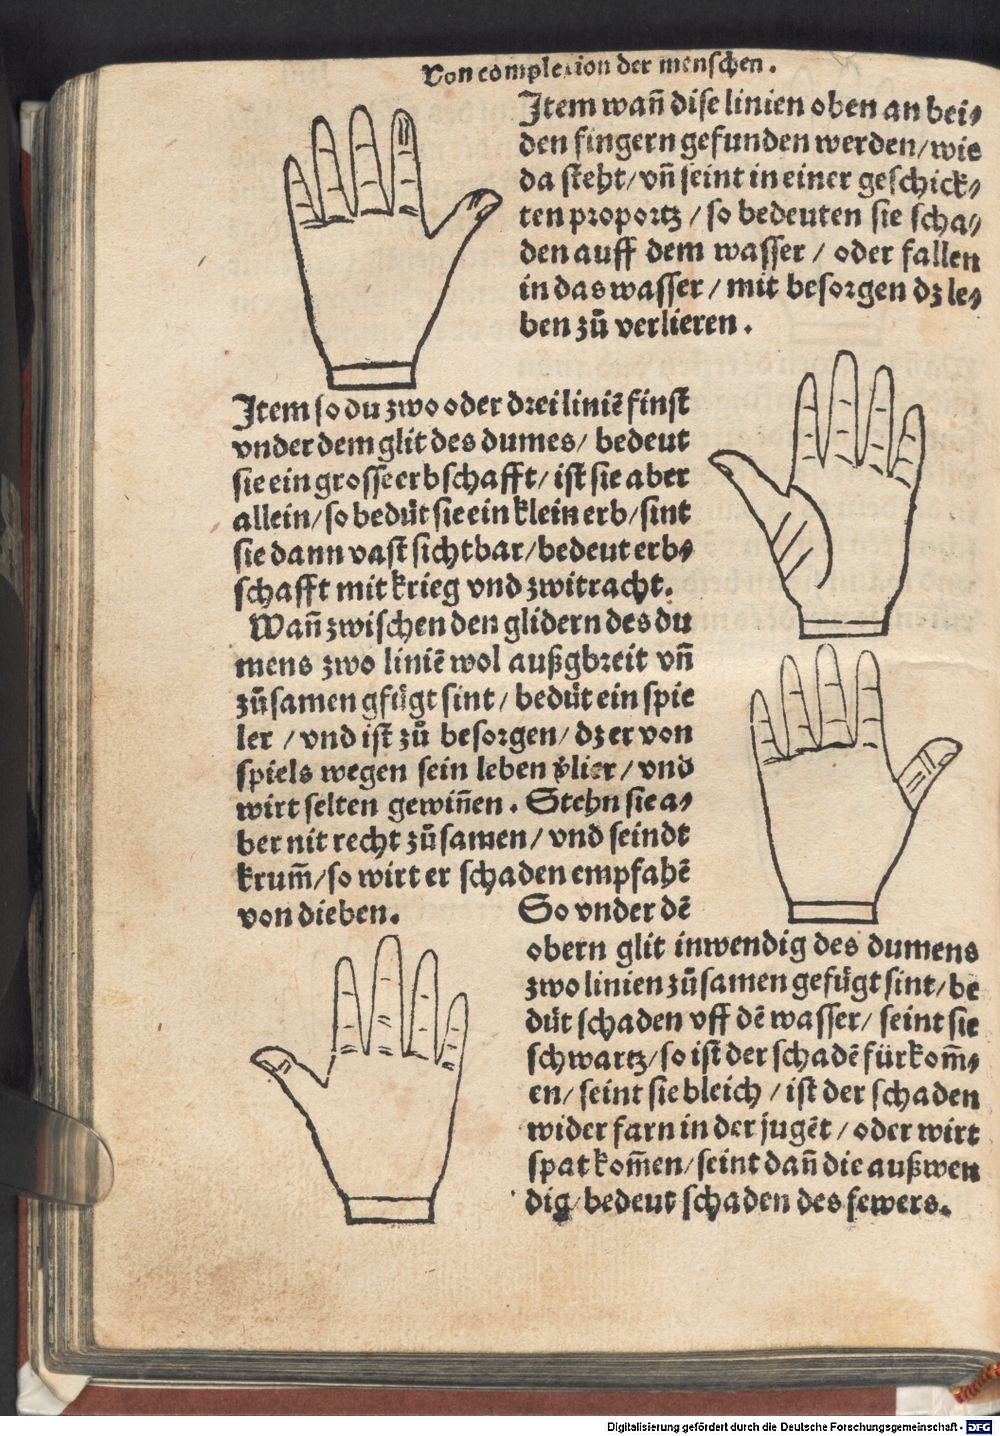 Von complexion der menschen.
Item wañ dise linien oben an bei⸗
den fingern gefunden werden/wie
da steht/vñ seint in einer geschick⸗
ten proportz/so bedeuten sie scha⸗
den auff dem wasser/oder fallen
in das wasser/mit besorgen dz le⸗
ben zů verlieren.
Item so du zwo oder drei liniẽ finst
vnder dem glit des dumes/ bedeut
sie ein grosse erbschafft/ ist sie aber
allein/so bedüt sie ein klein erb/sint
sie dann vast sichtbar/bedeut erb⸗
schafft mit krieg vnd zwitracht.
Wañ zwischen den glidern des du
mens zwo liniẽ wol außgbreit vñ
zůsamen gfügt sint/ bedüt ein spie
ler /vnd ist zů besorgen/dz er von
spiels wegen sein leben v̓lier/vnd
wirt selten gewiñen. Stehn sie a⸗
ber nit recht zůsamen/ vnd seindt
krum̃/so wirt er schaden empfahẽ
von dieben. So vnder dẽ
obern glit inwendig des dumens
zwo linien zůsamen gefügt sint/be
düt schaden vff dẽ wasser/ seint sie
schwartz/so ist der schadẽ fürkom̃⸗
en/ seint sie bleich /ist der schaden
wider farn in der jugẽt/oder wirt
spat kom̃en/seint dañ die außwen
dig/bedeut schaden des fewers.
Digitalisierung gefördert durch die Deutsche Forschungsgemeinschaft - DFG